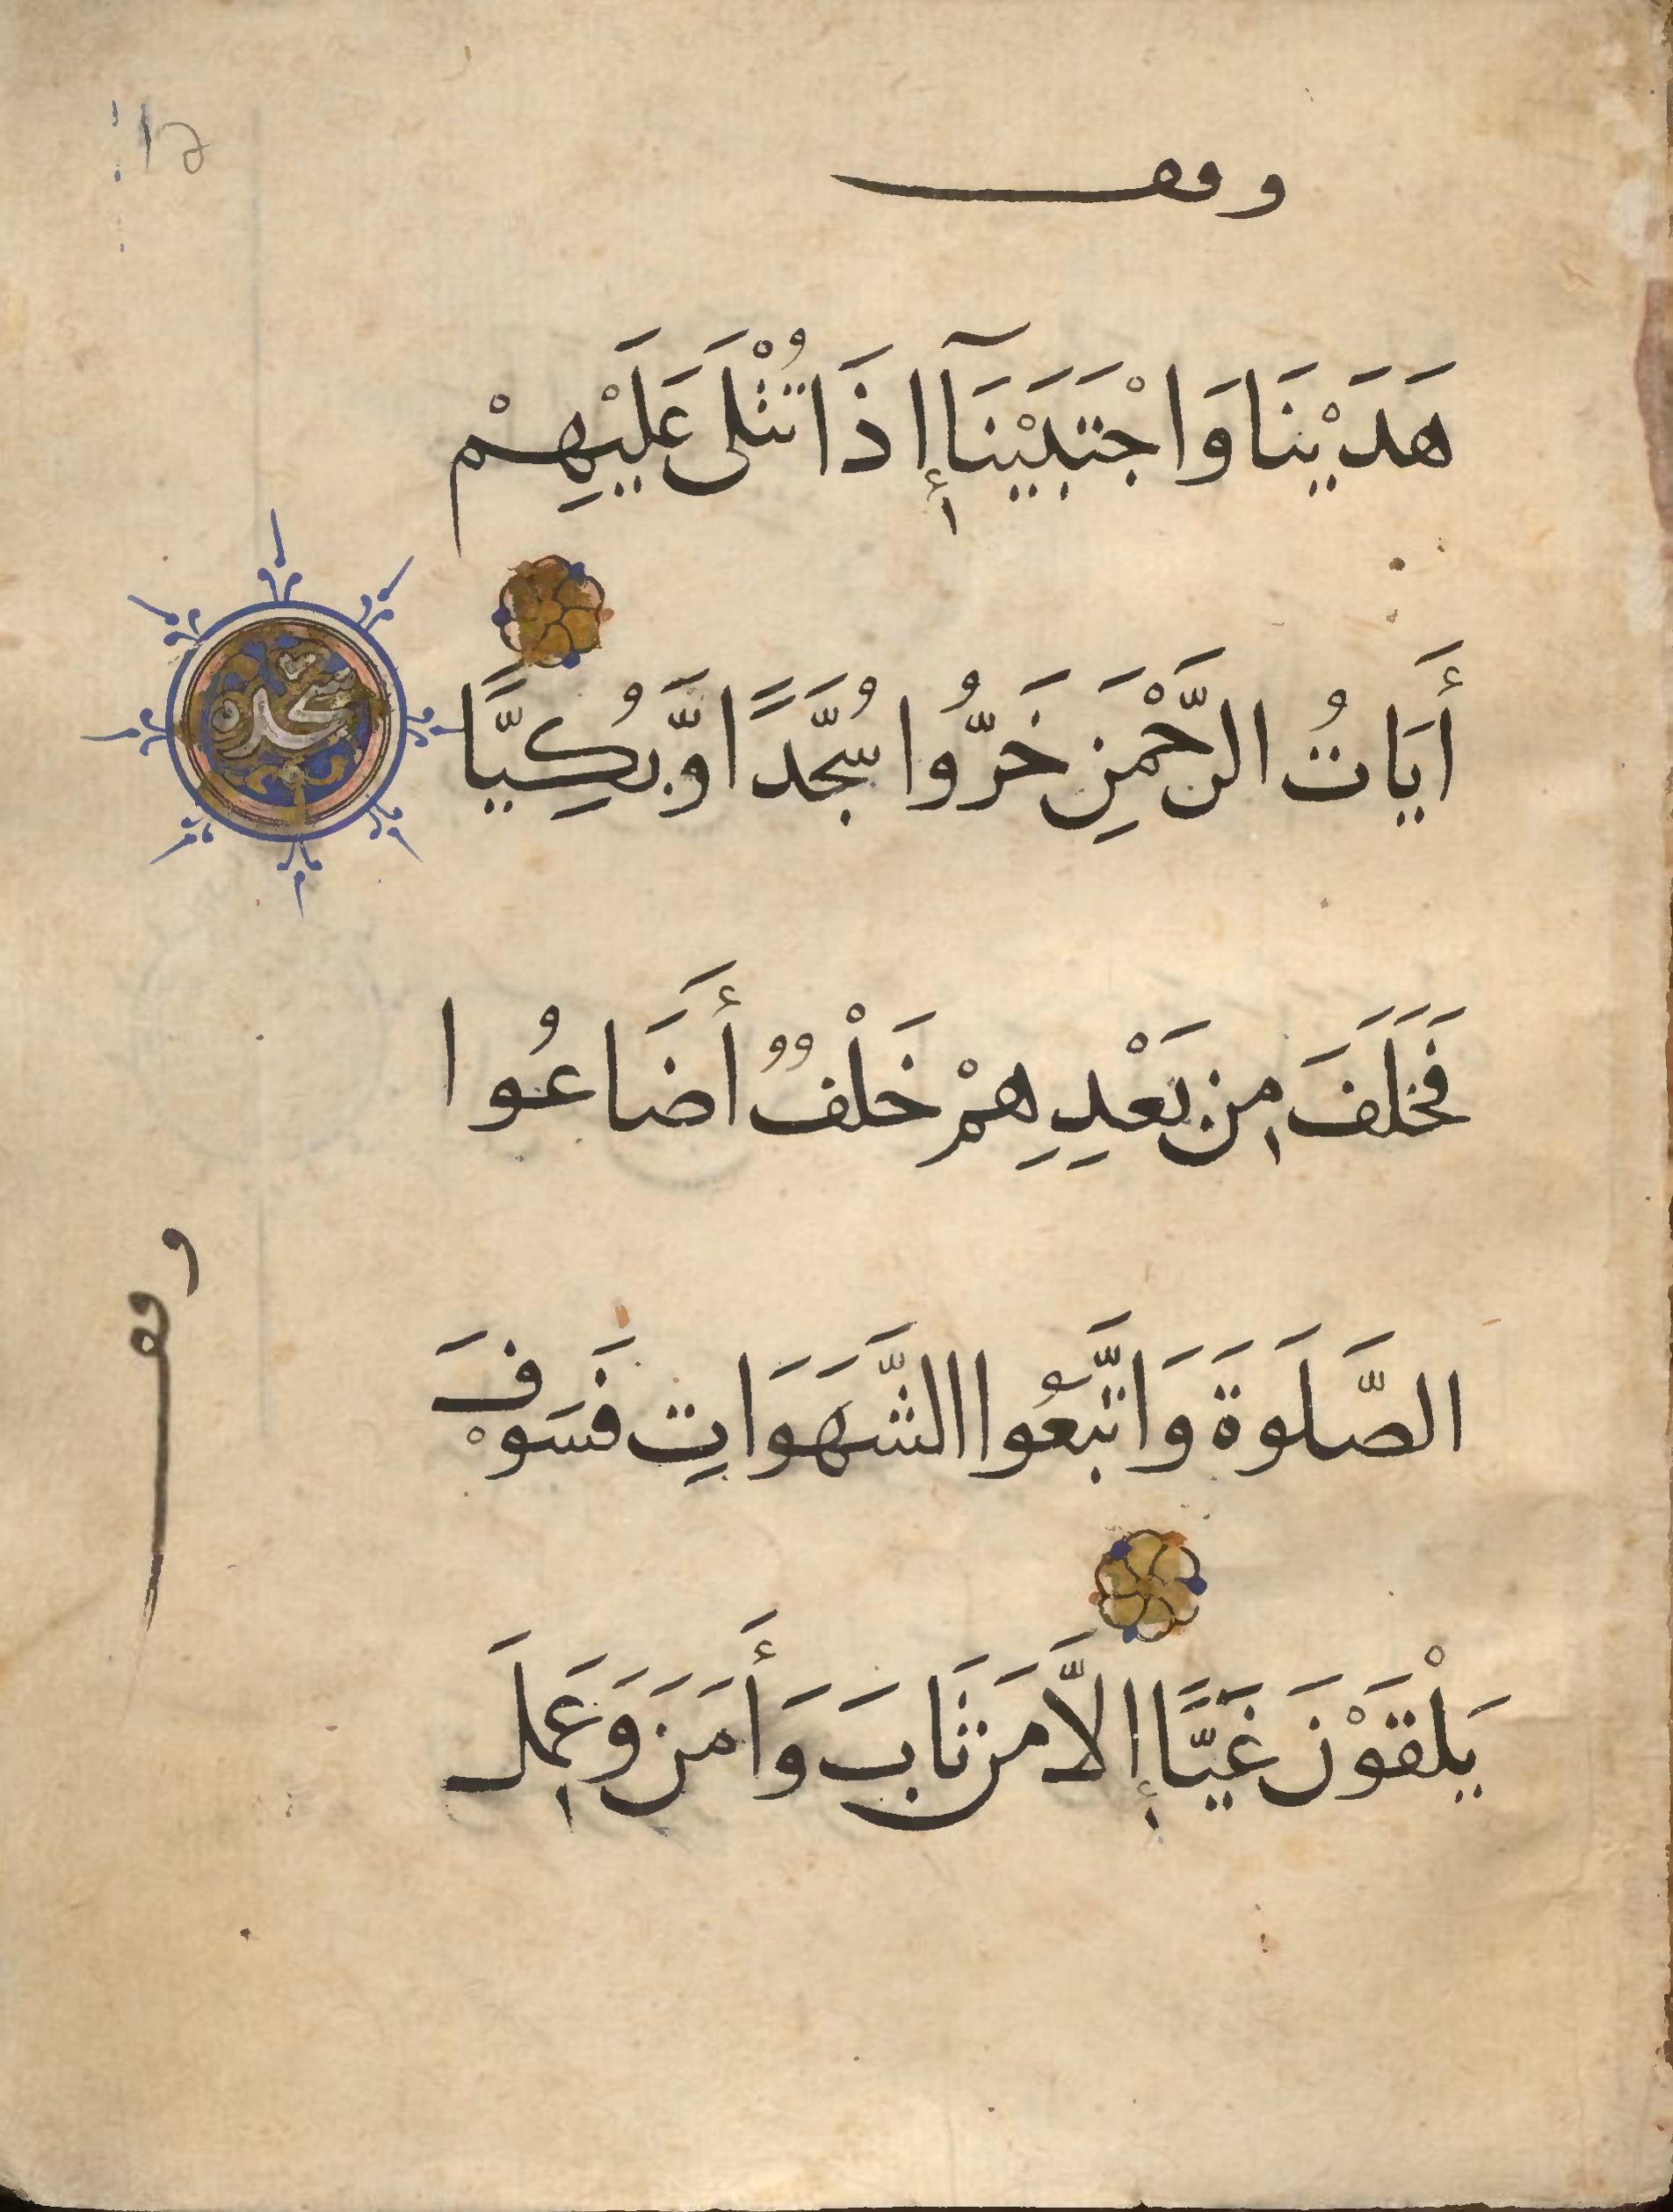 وقف
هَدَيْنَا وَاجْتَبَيْنَآ إِذَا تُتْلَى عَلَيْهِمْ
أَيَاتُ الرَّحْمَنِ خَرُّوا سُجَّدًا وَّبُكِيًّا
سجدة
فَخَلَفَ مِن بَعْدِهِمْ خَلْفٌ أَضَاعُوا
الصَّلَوةَ وَاتَّبَعُوا الشَّهَوَاتِ فَسَوْفَ
وقف
يَلْقَوْنَ غَيًّا إِلاَّ مَن تَابَ وَأَمَنَ وَعَمِلَ